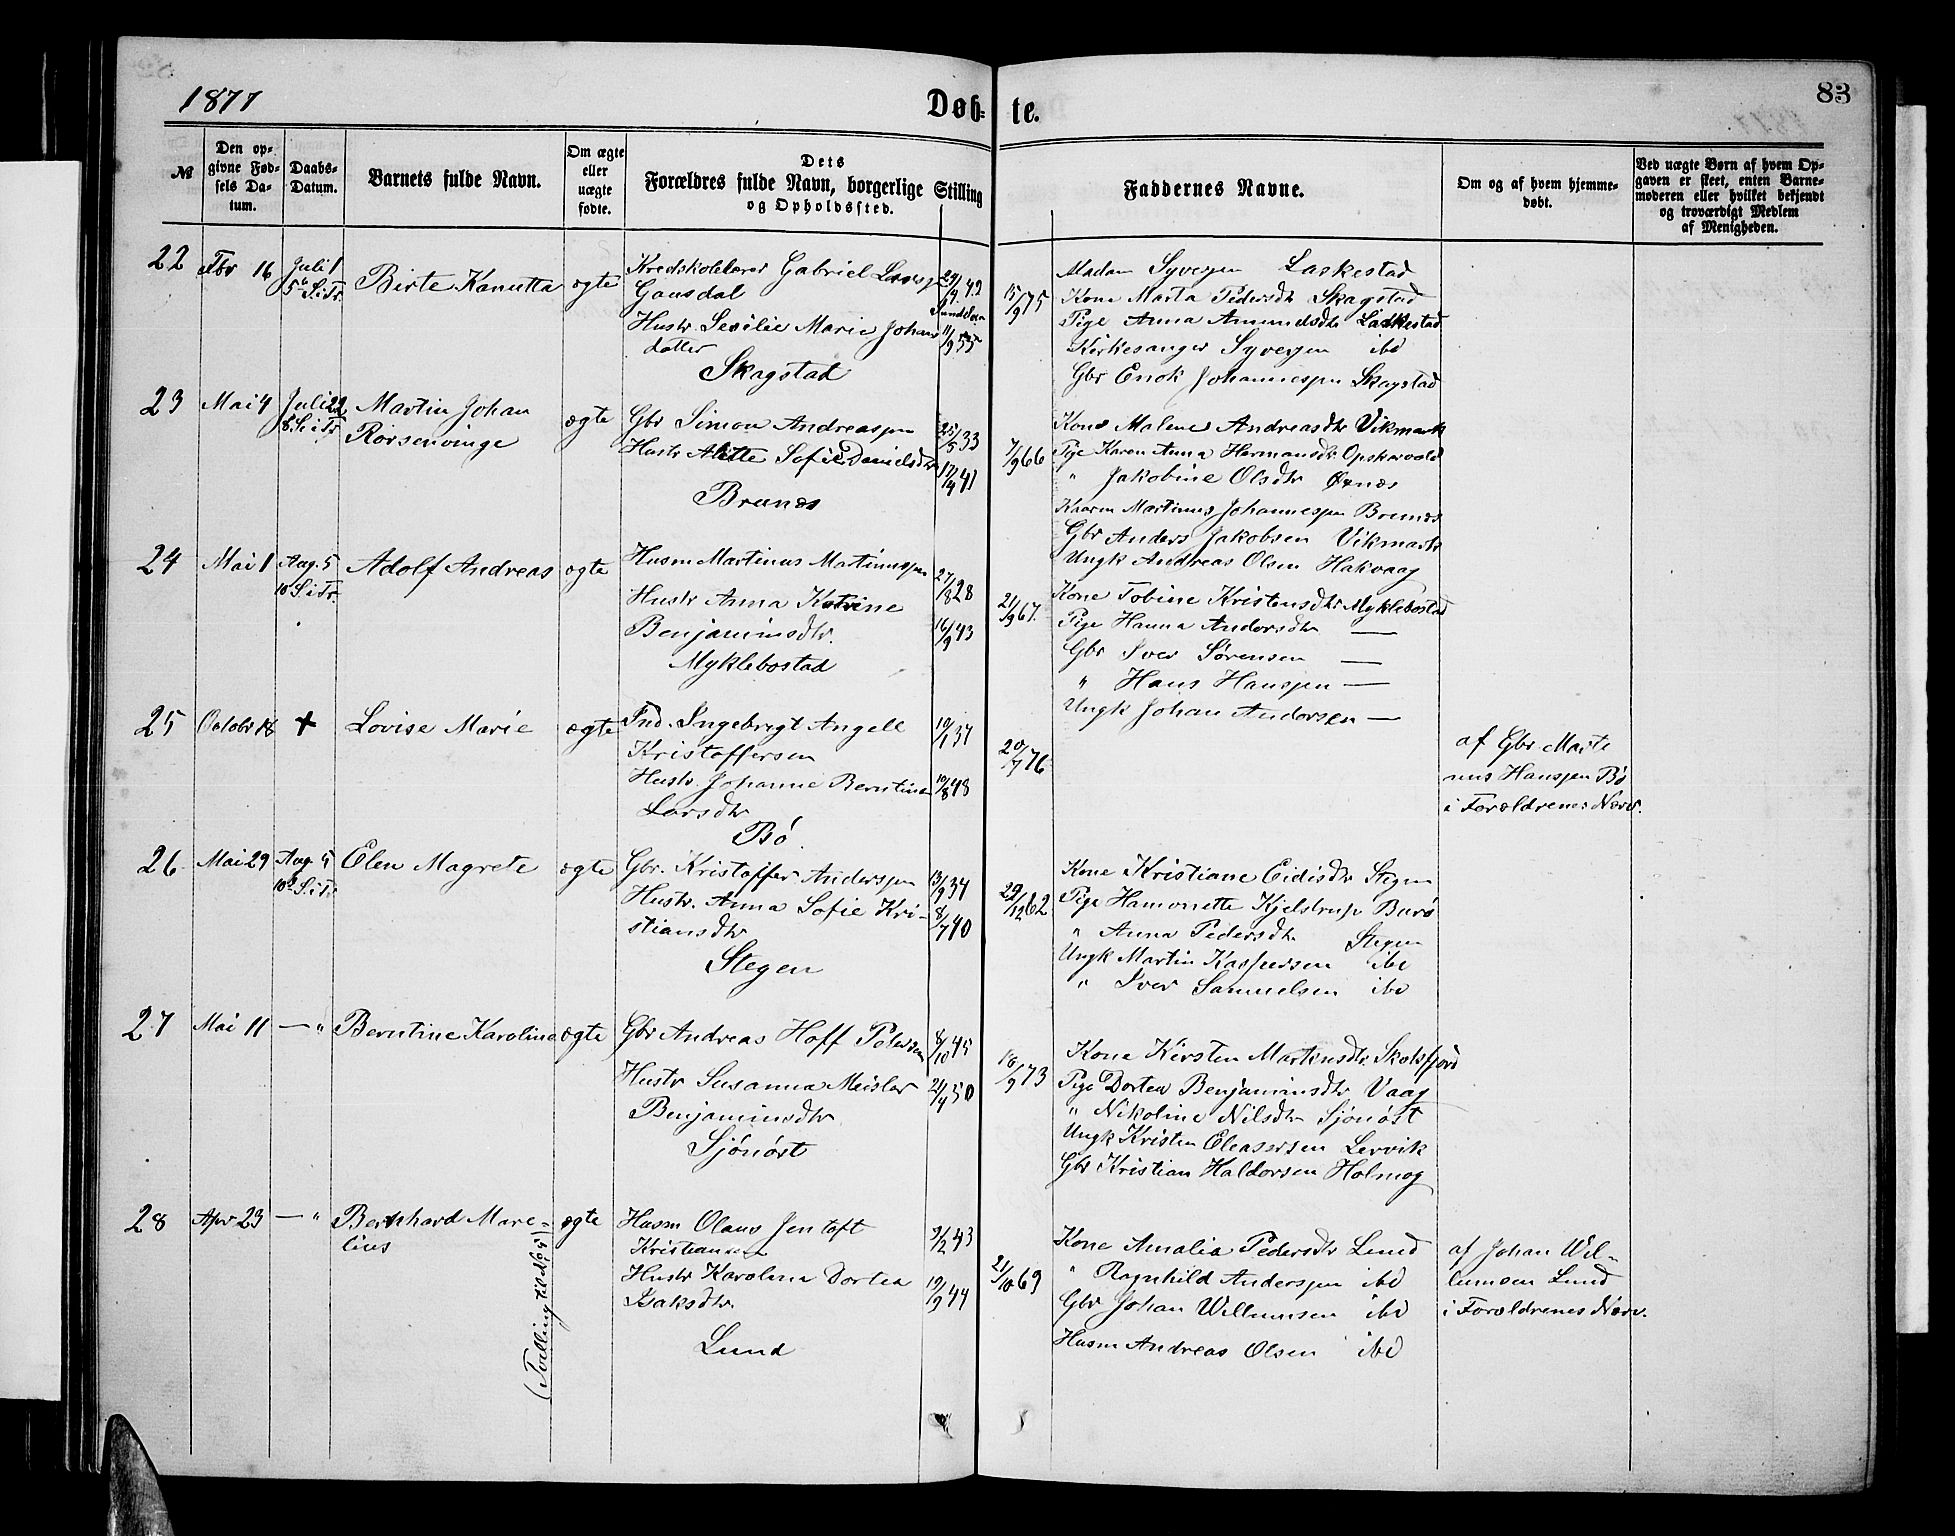 1877
Døb-
te.
83
№
Den op-
givne Fød-
sels Da-
tum.
Daabs-
Datum.
Barnets fulde Navn.
Om ægte
eller
uægte
fødte.
Dets
Forældres fulde Navn, borgerlige Stilling
og Opholdssted.
Faddernes Navne.
Om og af hvem hjemme-
døbt.
Ved uægte Børn af hvem Op-
gaven er skeet, enten Barne-
moderen eller hvilket bekjendt
og troværdigt Medlem
af Menigheden.
22
Fbr 16
Juli 1
5 S. i Tr.
Birte Kanutta
ægte
Kredskolelærer Gabriel
Gausdal
Hustr Sesilie Marie Johans
datter
Skagstad
11/9 55
15/9 75
Madam Syversen Laskestad
Kone Marta Pedersdtr Skagstad
Pige Anna Amundsdtr Laskestad
Kirkesanger Syversen ibd
Gbr Enok Johannessen Skagstad
23
Mai 4
Juli 22
8 S i Tr.
Martin Johan
Rørsenvinge
ægte
Gbr Simon Andreassen
Hustr Alette Sofie Danielsdtr
Brunes
25/5 33
17/4 41
7/9 66
Kone Malene Andreasdtr Vikmark
Pige Karen Anna Hermansdtr
" Jakobine Olsdtr Øxnes
Martinus Johannessen Brunes
Gbr Anders Jakobsen Vikmark
Ungk Andreas Olsen Hakvaag
24
Mai 1
Aug. 5
10 S. i Tr.
Adolf Andreas
ægte
Husm Martinus Martinussen
Hustr Anna Katrine
Benjaminsdtr.
Myklebostad
27/8 28
16/9 43
21/9 67.
Kone Tobine Kristensdtr Myklebostad
Pige Hanna Andersdtr —
Gbr Iver Sørensen —
" Hans Hanssen —
Ungk Johan Andorsen —
25
Octobr 18
+
Lovise Marie
ægte
Ind. Ingebregt Angell
Kristoffersen
Hustr. Johanne Berntine
Larsdtr
Bø.
10/1 37
10/8 48
20/7 76
af Gbr Marti
nus Hanssen Bø
i Forældrenes Nærv.
26
Mai 29
Aug 5
10 S. i Tr.
Elen Magrete
ægte
Gbr. Kristoffer Anderssen
Hustr. Anna Sofie Kri-
stiansdtr
Stegen
13/9 37
8/7 40
29/12 62
Kone Kristiane Eidisdtr Stegen
Pige Hamonette Kjelstrup Burø
" Anna Pedersdtr Stegen
Ungk Martin Kaspersen ibd
" Iver Samuelsen ibd
27
Mai 11
— "
Berntine Karoline
ægte
Gbr Andreas Hoff Petersen
Hustr Susanna Meisler
Benjaminsdtr
Sjønøst
8/10 45
21/4 50
18/9 73
Kone Kirsten Martinsdtr Skotsfjord
Pige Dortea Benjaminsdtr Vaag
" Nikoline Nilsdtr Sjønøst
Ungk Kristen Eleasersen Lervik
Gbr Kristian Haldorsen Holmog
28
Apr 23
— "
Bernhard Mare-
lius
(Tvilling
ægte
Husm Olaus Jentoft
Kristiansen
Hustr Karolina Dortea
Isaksdtr.
Lund
2/2 43
19/9 44
21/10 69
Kone Amalia Pedersdtr Lund
" Ragnhild Anderssen ibd
Gbr Johan Willumsen ibd
Husm Andreas Olsen ibd
af Johan Wil-
lumsen Lund
i Forældrenes Nærv.